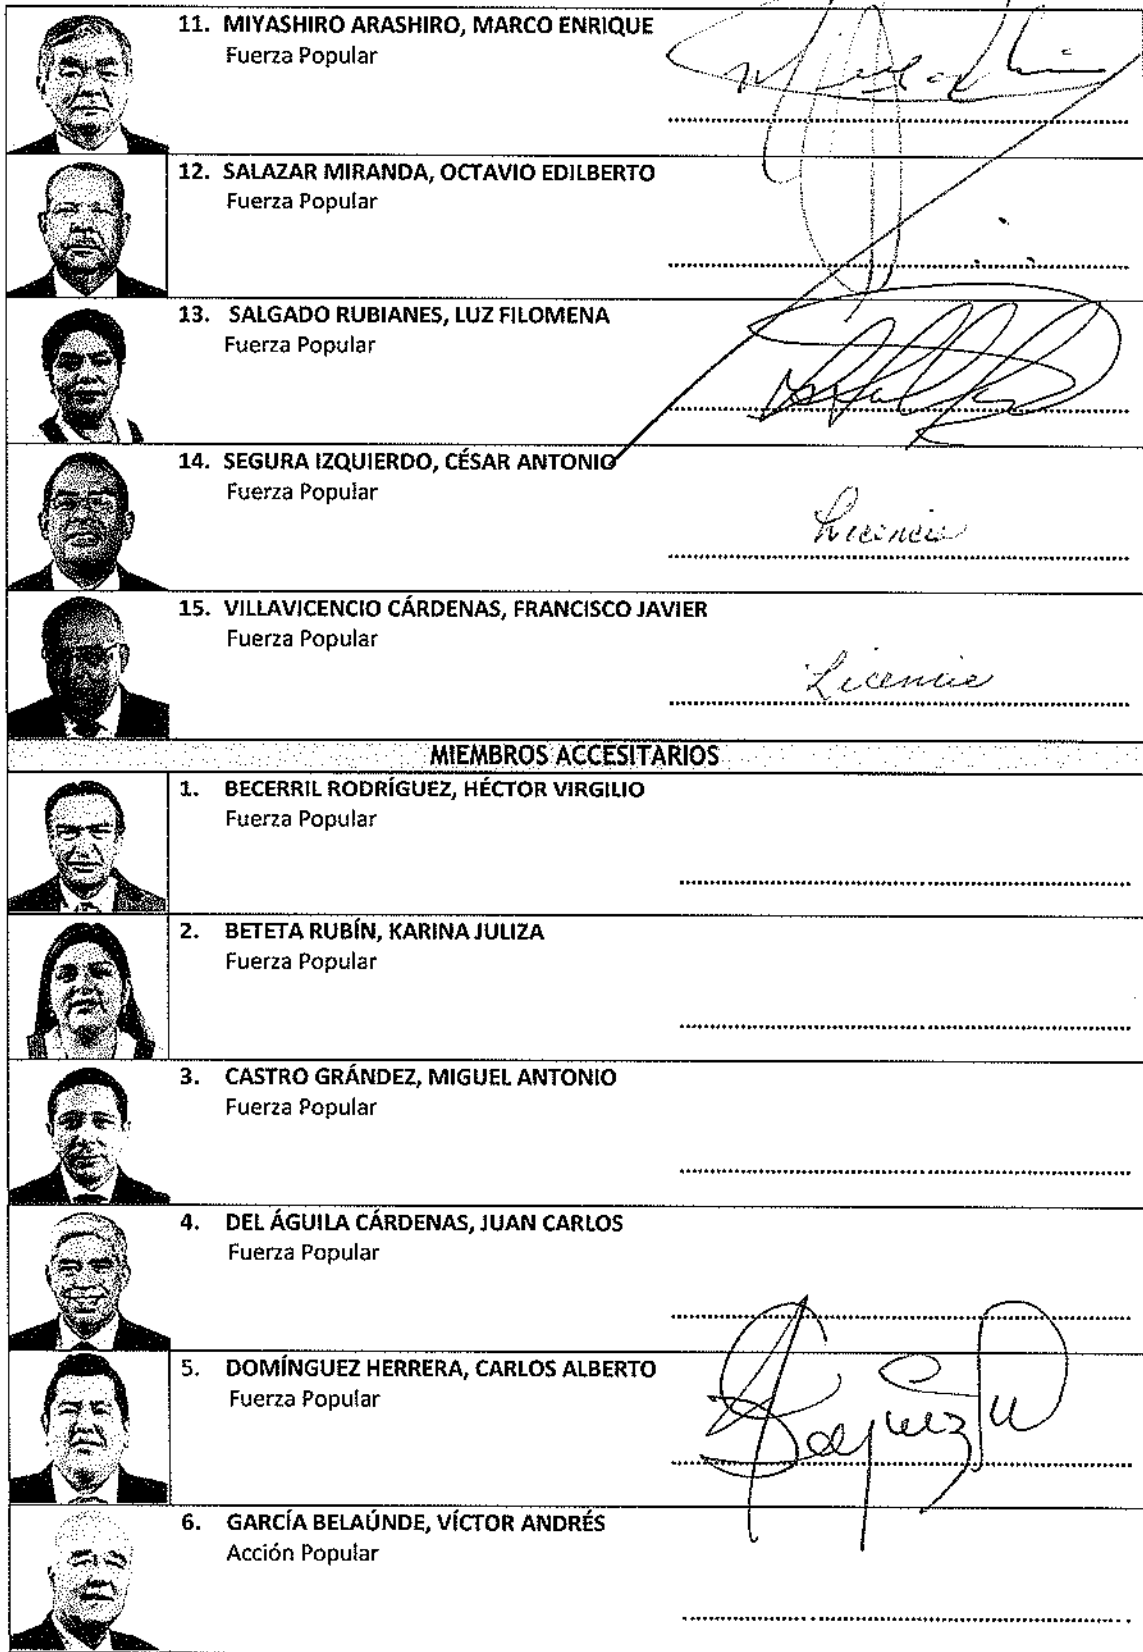 11. MIYASHIRO ARASHIRO, MARCO ENRIQUE
Fuerza Popular
12. SALAZAR MIRANDA, OCTAVIO EDILBERTO
Fuerza Popular
13. SALGADO RUBIANES, LUZ FILOMENA
Fuerza Popular
14. SEGURA IZQUIERDO, CÉSAR ANTONIO
Fuerza Popular
Licencia
15. VILLAVICENCIO CÁRDENAS, FRANCISCO JAVIER
Fuerza Popular
Licencia
MIEMBROS ACCESITARIOS
1. BECERRIL RODRÍGUEZ, HÉCTOR VIRGILIO
Fuerza Popular
2. BETETA RUBÍN, KARINA JULIZA
Fuerza Popular
3. CASTRO GRÁNDEZ, MIGUEL ANTONIO
Fuerza Popular
4. DEL ÁGUILA CÁRDENAS, JUAN CARLOS
Fuerza Popular
5. DOMÍNGUEZ HERRERA, CARLOS ALBERTO
Fuerza Popular
6. GARCÍA BELAÚNDE, VÍCTOR ANDRÉS
Acción Popular